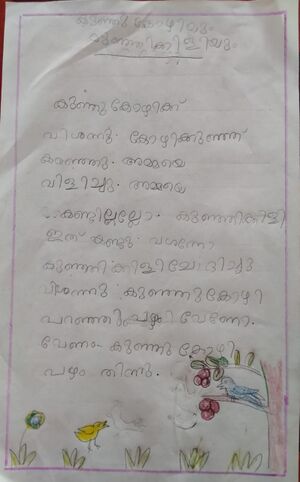 കുഞ്ഞു കോഴിയും
കുഞ്ഞിക്കിളിയും
കുഞ്ഞു കോഴിക്ക്
വിശന്നു. കോഴിക്കുഞ്ഞ്
കരഞ്ഞു. അമ്മയെ
വിളിച്ചു. അമ്മയെ
കണ്ടില്ലല്ലോ. കുഞ്ഞിക്കിളി
ഇത് കണ്ടു. വന്നോ
കുഞ്ഞിക്കിളി ചോദിച്ചു
വിശന്നു കുഞ്ഞുകോഴി
പറഞ്ഞു. പഴം വേണോ.
വേണം കുഞ്ഞു കോഴി
പഴം തിന്നു.